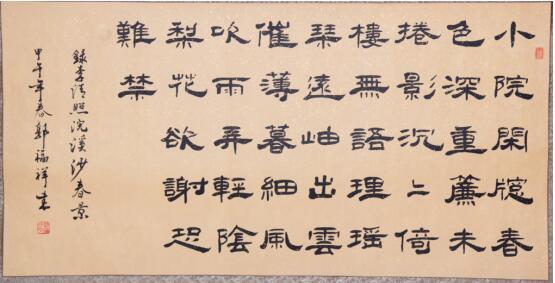 小院閑牕春
色深重簾未
捲影沉〻倚
樓無語理瑤
琴遠岫出雲
催薄暮細風
吹雨弄輕陰
梨花欲謝恐
難禁
錄李清照浣溪沙春景
甲午年春郭福祥書